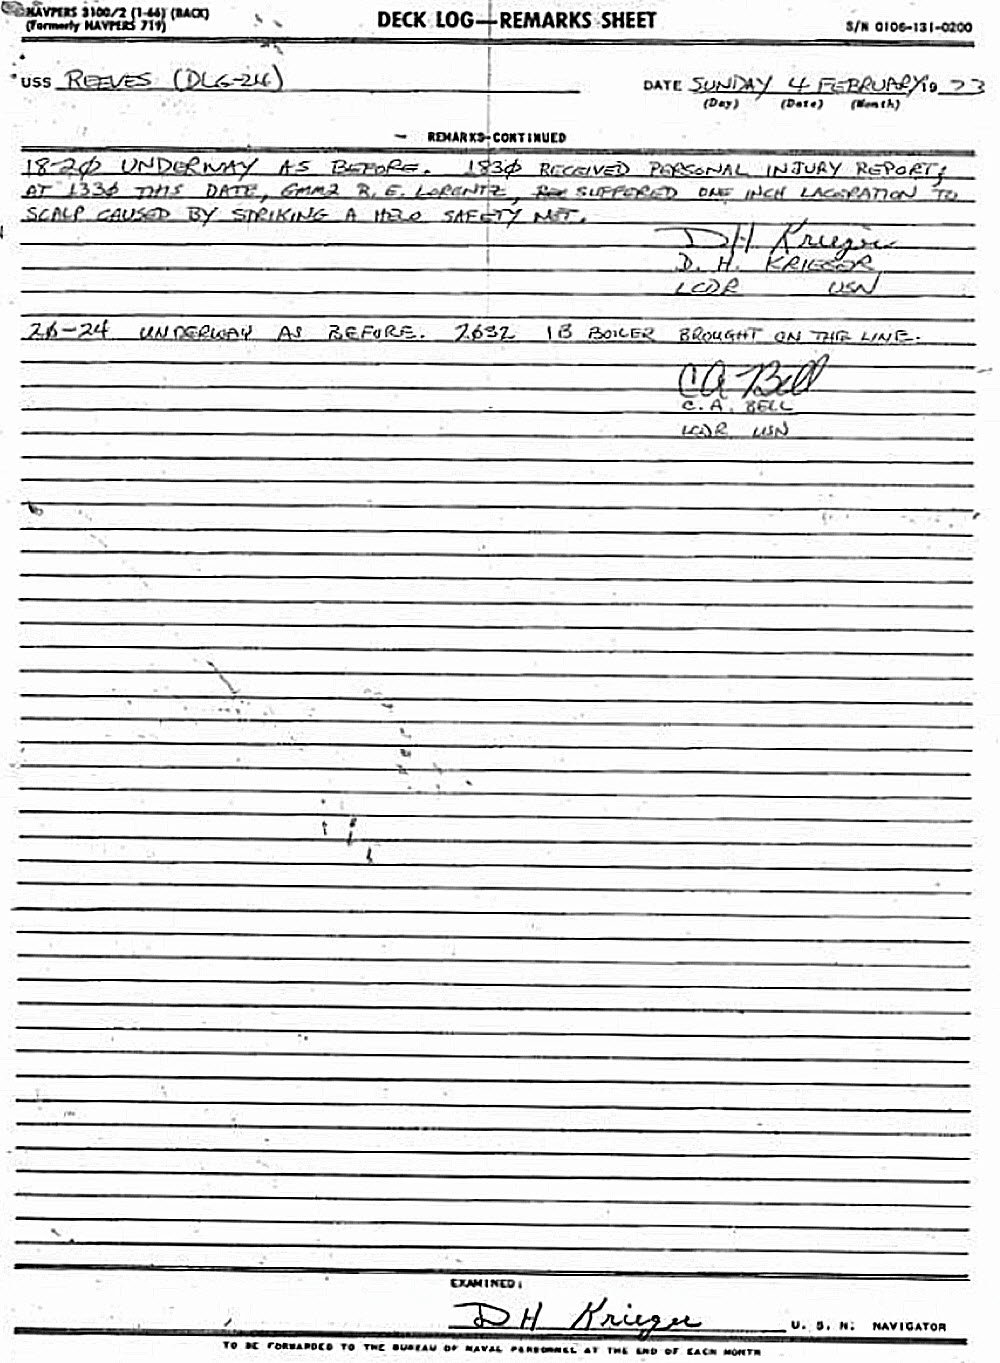 NAVPERS 3100/2 (1-66) (BACK)
(Formerly NAVPERS 719)
DECK LOG—REMARKS SHEET
S/N 0106-131-0200
USS REEVES (DLG-24)
DATE SUNDAY 4 FEBRUARY 19 73
(Day) (Date) (Month)
REMARKS-CONTINUED
18-2Ø UNDERWAY AS BEFORE. 183Ø RECEIVED PERSONAL INJURY REPORT;
AT 133Ø THIS DATE, GMM2 R. E. LORENTZ, SUFFERED ONE INCH LACERATION TO
SCALP CAUSED BY STRIKING A HELO SAFETY NET.
DH Krieger
D. H. KRIEGER
LCDR USN
2Ø-24 UNDERWAY AS BEFORE. 1B BOILER BROUGHT ON THE LINE.
CA Bell
C. A. BELL
LCDR USN
EXAMINED:
DH Krieger
U. S. N. NAVIGATOR
TO BE FORWARDED TO THE BUREAU OF NAVAL PERSONNEL AT THE END OF EACH MONTH